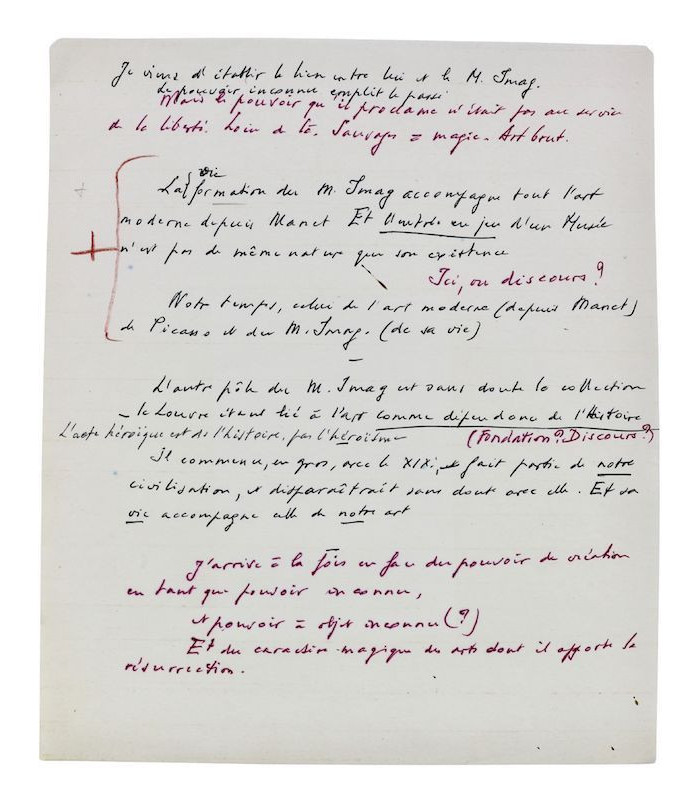 Je viens d'établir le lien entre lui et le M. Imag.
Le pouvoir inconnu emplit le passé
Mais le pouvoir qu'il proclame n'était pas au service
de la liberté. Loin de là. Sauvages = magie - Art brut.
vie
La formation du M. Imag accompagne tout l'art
moderne depuis Manet Et l'entrée en jeu d'un Musée
+ n'est pas de même nature que son existence
Ici, ou discours?
Notre temps, celui de l'art moderne (depuis Manet)
de Picasso et du M. Imag. (de sa vie)
–
L'autre pôle du M. Imag est sans doute la collection
– le Louvre étant lié à l'art comme dépendance de l'Histoire
L'acte héroïque est de l'histoire, pas l'héroïsme (Fondation? Discours?)
Il commence, en gros, avec le XIXe, et fait partie de notre
civilisation, et disparaîtrait sans doute avec elle. Et sa
vie accompagne celle de notre art
J'arrive à la fois en face du pouvoir de création
en tant que pouvoir inconnu,
et pouvoir = objet inconnu (?)
Et du caractère magique des arts dont il apporte la
résurrection.